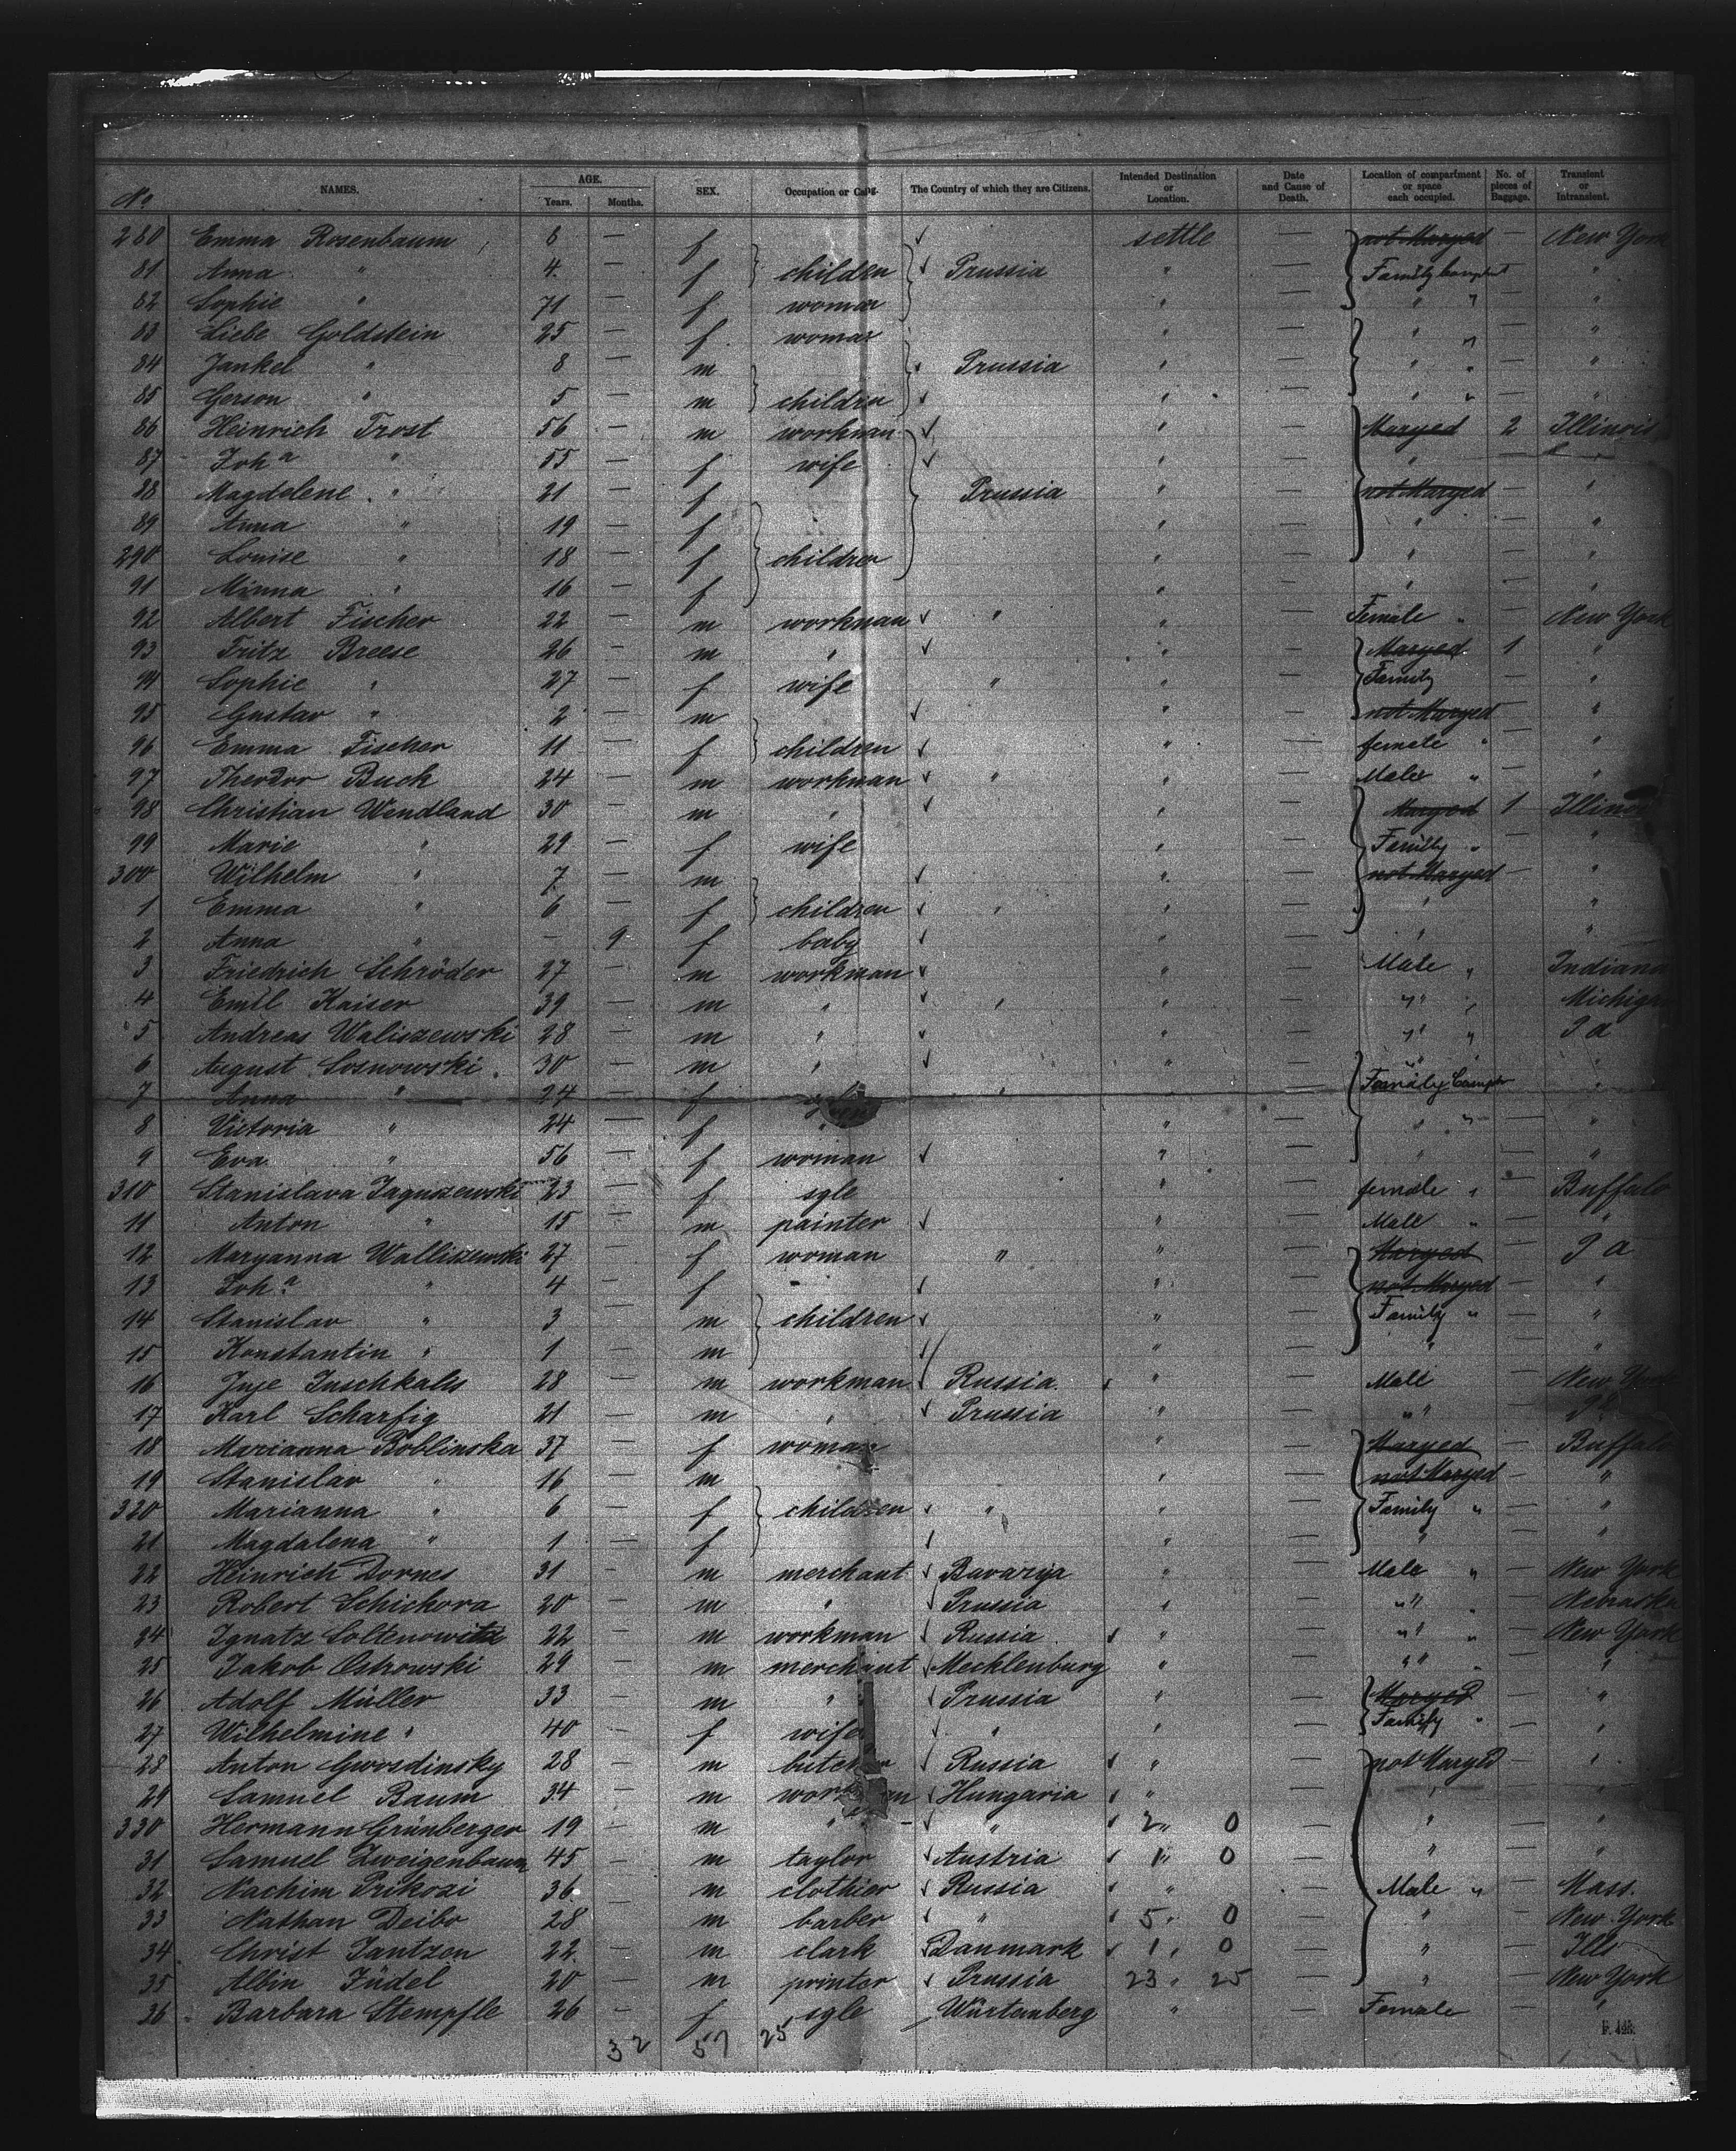 No. NAMES. AGE. Years. Months. SEX. Occupation or Calling. The Country of which they are Citizens. Intended Destination or Location. Date and Cause of Death. Location of compartment or space each occupied. No. of pieces of Baggage. Transient or Intransient.
280 Emma Rosenbaum 6 — f settle — not Maryed — New York
81 Anna " 4 — f children Prussia " — Family " — "
82 Sophie " 71 — f woman " — " " — "
83 Liebe Goldstein 25 — f woman " — " " — "
84 Jankel " 8 — m Prussia " — " " — "
85 Gerson " 5 — m children " — " " — "
86 Heinrich Trost 56 — m workman " — Maryed 2 Illinois
87 Joha " 55 — f wife " — " —
88 Magdelene " 21 — f Prussia " — not Maryed — "
89 Anna " 19 — f " — " — "
290 Louise " 18 — f children " — " — "
91 Minna " 16 — f " — " — "
92 Albert Fischer 22 — m workman " " — Female " — New York
93 Fritz Breese 26 — m " " — Maryed 1 "
94 Sophie " 27 — f wife " " — Family "
95 Gustav " 2 — m " — not Maryed — "
96 Emma Fischer 11 — f children " — female " — "
97 Theodor Buck 24 — m workman " " — Male " — "
98 Christian Wendland 30 — m " " — Maryed 1 Illinois
99 Marie " 29 — f wife " — Family " "
300 Wilhelm " 7 — m " — not Maryed — "
1 Emma " 6 — f children " " — " "
2 Anna " — 9 f baby " — " "
3 Friedrich Schröder 27 — m workman " — Male " — Indiana
4 Emil Kaiser 39 — m " " " — " " — Michigan
5 Andreas Waliszewski 28 — m " " — " " — Pa
6 August Sosnowski 30 — m " " — " — "
7 Anna " 24 — f " — Family " "
8 Victoria " 24 — f " " — " " — "
9 Eva " 56 — f woman " — " — "
310 Stanislava Jaguszewski 23 — f sgle " — female " — Buffalo
11 Anton " 15 — m painter " — Male " — "
12 Maryanna Walliszewski 27 — f woman " " — Maryed — Pa
13 Joha " 4 — f " — not Maryed — "
14 Stanislav " 3 — m children " — Family " — "
15 Konstantin " 1 — m " — " — "
16 28 — m workman Russia " — Male — New York
17 Karl Scharfig 21 — m " Prussia " — " " —
18 Marianna Roblinska 37 — f woman " — Maryed — Buffalo
19 Stanislav " 16 — m " — not Maryed — "
320 Marianna " 6 — f children " " — Family " — "
21 Magdalena " 1 — f " — " — "
22 Heinrich Dornes 31 — m merchant Bavarya " — Male " — New York
23 Robert Schickora 20 — m " Prussia " — " " — Nebraska
24 Ignatz Soltenowitz 22 — m workman Russia " — " " — New York
25 Jakob Ostrowski 29 — m merchant Mecklenburg " — " " — "
26 Adolf Müller 33 — m " Prussia " — Maryed — "
27 Wilhelmine " 40 — f wife " " — Family " — "
28 Anton Gwosdinsky 28 — m butcher Russia " — not Maryed — "
29 Samuel Baum 34 — m workman Hungaria " — " — "
330 Hermann Grünberger 19 — m " " 2 " 0 — " — "
31 Samuel Zweigenbaum 45 — m taylor Austria 1 " 0 — " — "
32 Nachim Prikozi 36 — m clothier Russia " — Male " — Mass.
33 Nathan Deibo 28 — m barber " 5 " 0 — " — New York
34 Christ Jantzen 22 — m clark Danmark 1 " 0 — " — Ills
35 Albin Jüdel 20 — m printer Prussia 23 " 25 — " — New York
36 Barbara Stempfle 26 — f sgle Würtemberg " — Female — "
32 57 25